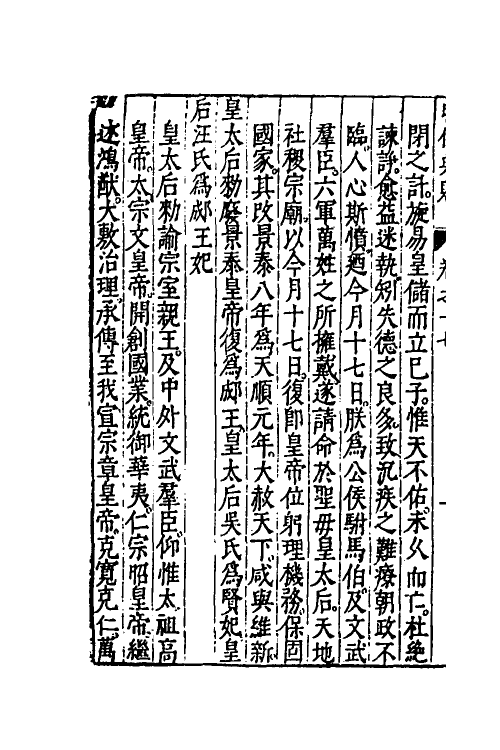 閉之訐。旋易皇儲而立已子。惟天不佑。未久而亡。杜絶
諫諍。愈益迷執。矧失德之良多。致沉疾之難療。朝政不
臨。人心斯憤。廼今月十七日。朕為公侯駙馬伯。及文武
羣臣。六軍萬姓之所擁戴。遂請命於聖母皇太后。天地
社稷宗廟。以今月十七日。復卽皇帝位。躬理機務。保固
國家。其改景泰八年為天順元年。大赦天下。咸與維新
皇太后勑廢景泰皇帝復為郕王。皇太后吳氏為賢妃。皇
后汪氏為郕王妃
皇太后勑諭宗室親王。及中外文武羣臣。仰惟太祖高
皇帝。太宗文皇帝。開創國業。統御華夷。仁宗昭皇帝。繼
述鴻猷。大敷治理。承傳至我宣宗章皇帝。克寬克仁。萬